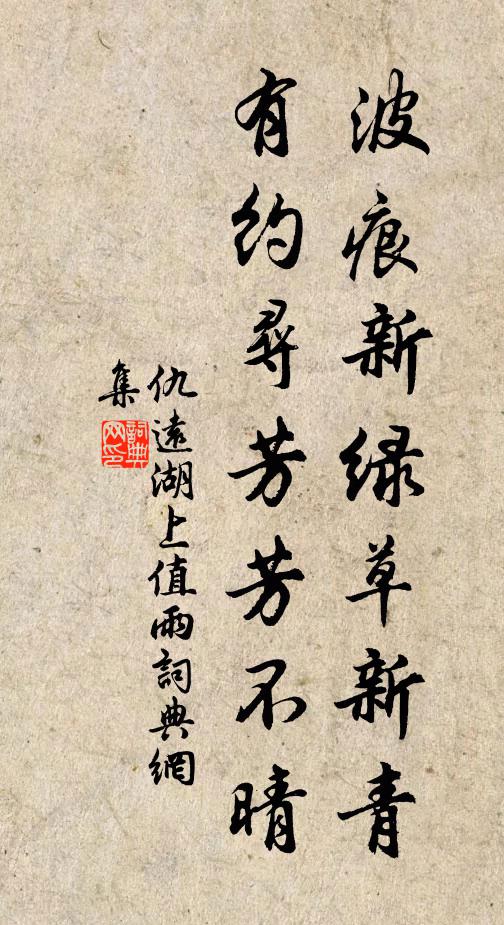 波痕新绿草新青
有约寻芳芳不晴
仇远湖上值雨詞典網
集
詞典网印